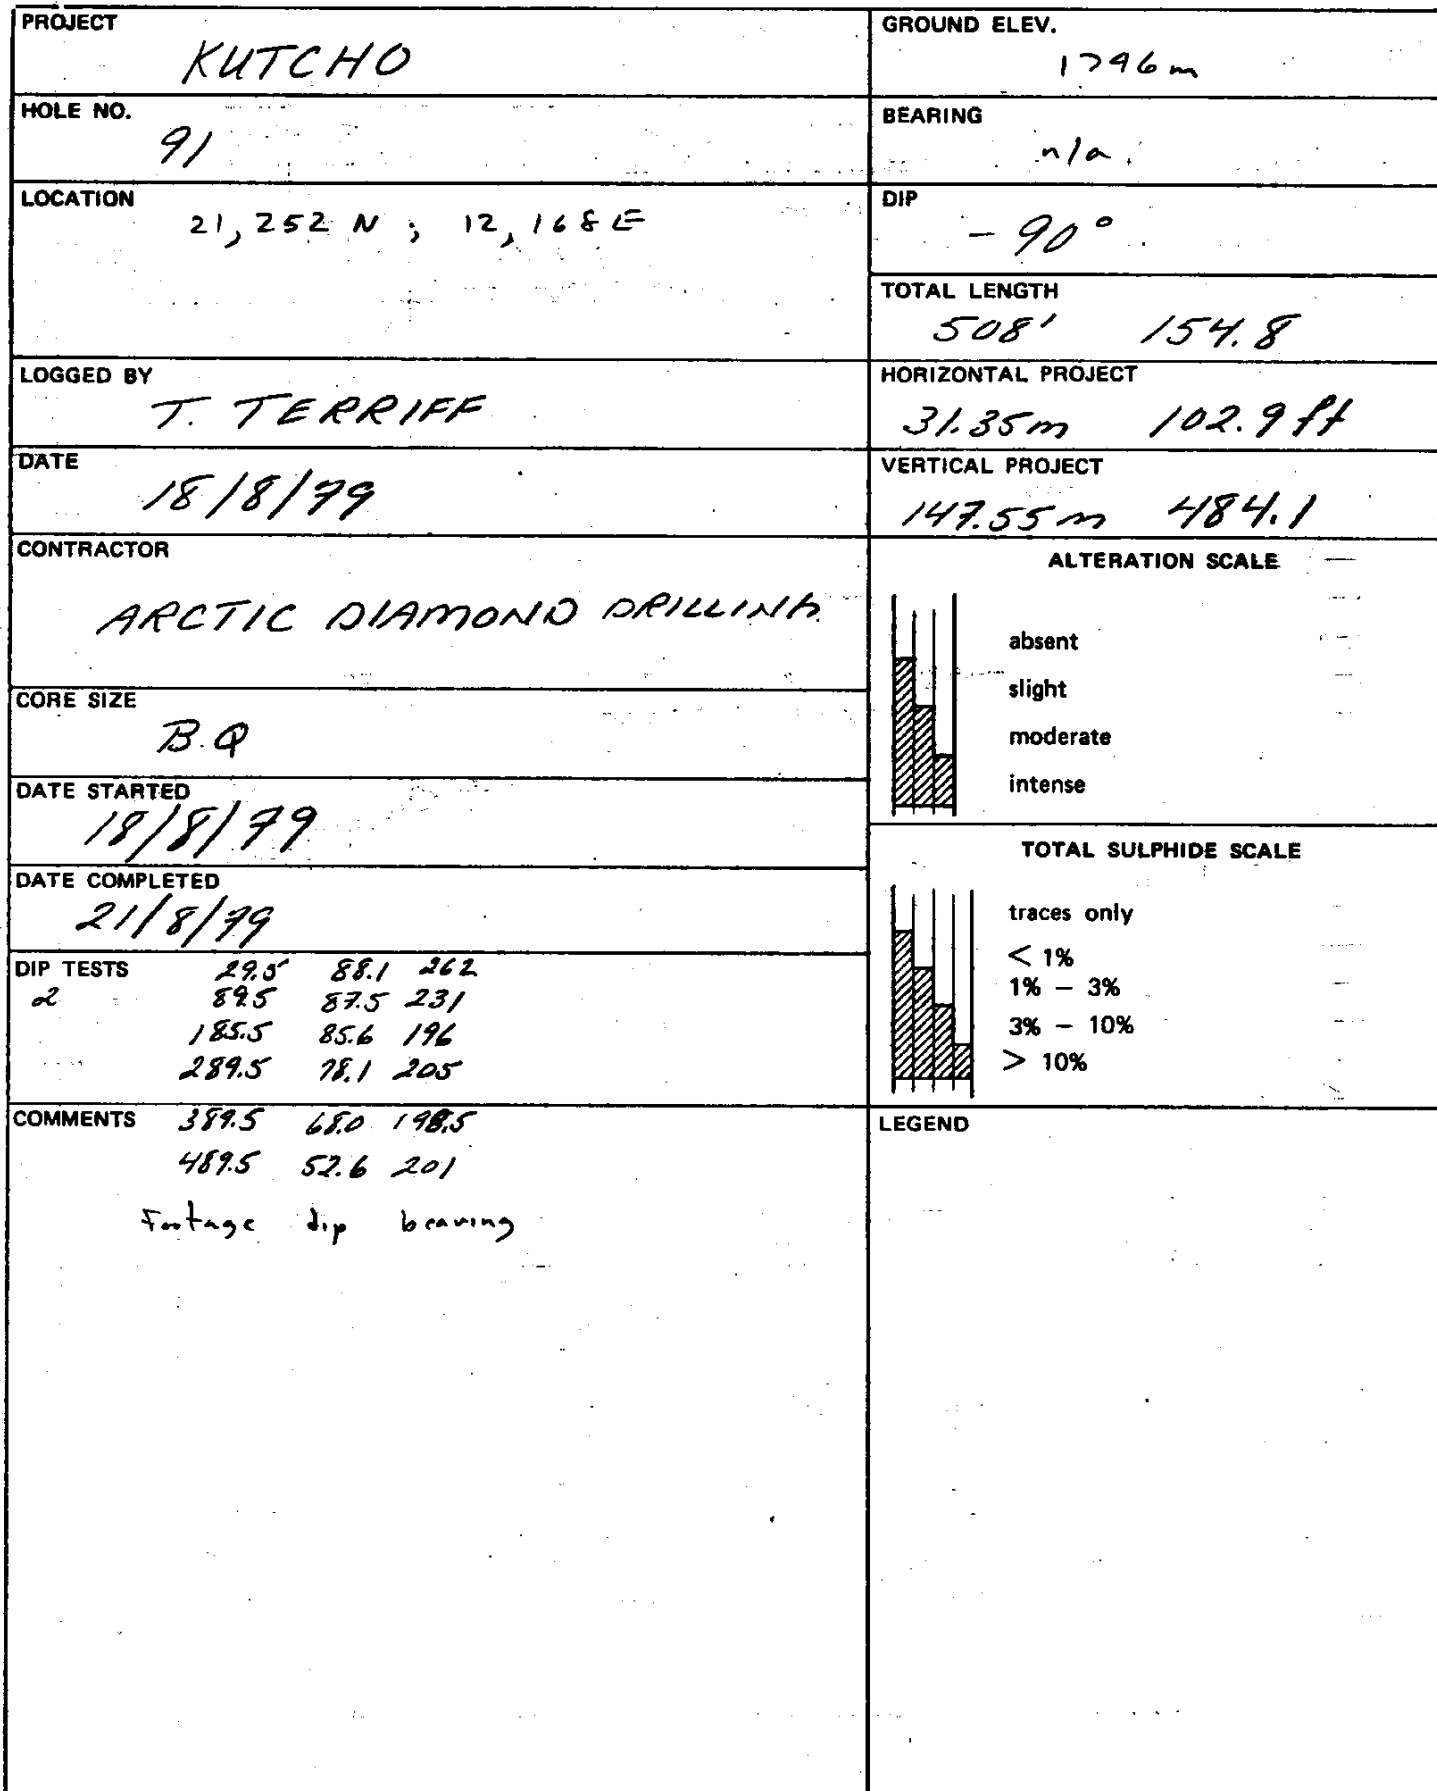 PROJECT
KUTCHO
HOLE NO.
91
LOCATION
21,252 N ; 12,168 E
LOGGED BY
T. TERRIFF
DATE
18/8/79
CONTRACTOR
ARCTIC DIAMOND DRILLING
CORE SIZE
B.Q
DATE STARTED
18/8/79
DATE COMPLETED
21/8/79
DIP TESTS 29.5 88.1 262
89.5 87.5 231
185.5 85.6 196
289.5 78.1 205
COMMENTS 389.5 68.0 198.5
489.5 52.6 201
Footage dip bearing
GROUND ELEV.
1796m
BEARING
n/a
DIP
-90°
TOTAL LENGTH
508' 154.8
HORIZONTAL PROJECT
31.35m 102.9 ft
VERTICAL PROJECT
147.55m 484.1
ALTERATION SCALE
absent
slight
moderate
intense
TOTAL SULPHIDE SCALE
traces only
< 1%
1% – 3%
3% – 10%
> 10%
LEGEND